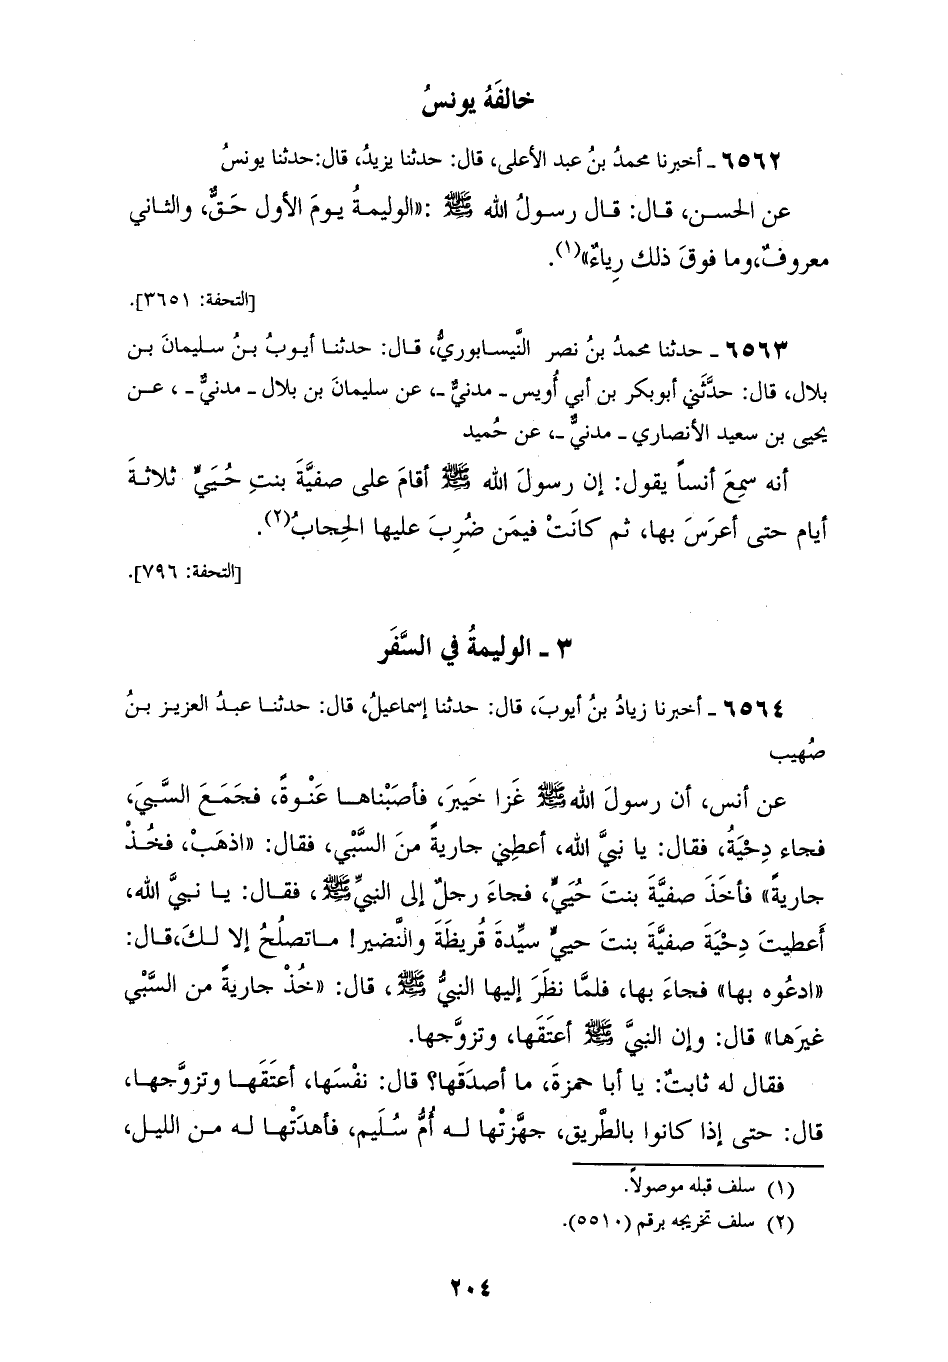 خالفَهُ يونسُ
٦٥٦٢ ـ أخبرنا محمدُ بنُ عبد الأعلى، قال: حدثنا يزيدُ، قال:حدثنا يونسُ
عن الحسن، قال: قال رسولُ الله ﷺ :«الوليمةُ يومَ الأول حَقٌّ، والثاني
معروفٌ،وما فوقَ ذلك رِياءٌ»(١).
[التحفة: ٣٦٥١].
٦٥٦٣ ـ حدثنا محمدُ بنُ نصر النَّيسابوريُّ، قال: حدثنا أيوبُ بنُ سليمانَ بن
بلال، قال: حدَّثَني أبوبكر بن أبي أُويس ـ مدنيٌّ ـ، عن سليمانَ بن بلال ـ مدنيٌّ ـ ، عن
يحيى بن سعيد الأنصاري ـ مدنيٌّ ـ، عن حُميد
أنه سمِعَ أنساً يقول: إن رسولَ الله ﷺ أقامَ على صفيَّةَ بنتِ حُيَيٍّ ثلاثةَ
أيام حتى أعرَسَ بها، ثم كانَتْ فيمَن ضُرِبَ عليها الحِجابُ(٢).
[التحفة: ٧٩٦].
٣ ـ الوليمةُ في السَّفَر
٦٥٦٤ ـ أخبرنا زيادُ بنُ أيوبَ، قال: حدثنا إسماعيلُ، قال: حدثنا عبدُ العزيز بنُ
صُهيب
عن أنس، أن رسولَ الله ﷺ غَزا خَيبرَ، فأصَبْناها عَنْوةً، فجَمَعَ السَّبيَ،
فجاء دِحْيَةُ، فقال: يا نبيَّ الله، أعطِني جاريةً منَ السَّبْي، فقال: «اذهَبْ، فخُذْ
جاريةً» فأخَذَ صفيَّةَ بنتَ حُيَيٍّ، فجاءَ رجلٌ إلى النبيِّ ﷺ ، فقال: يا نبيَّ الله،
أَعطيتَ دِحْيَةَ صفيَّةَ بنتَ حييٍّ سيِّدةَ قُريظَةَ والنَّضير! ماتصلُحُ إلا لكَ،قال:
«ادعُوه بها» فجاءَ بها، فلمَّا نظَرَ إليها النبيُّ ﷺ ، قال: «خُذْ جاريةً من السَّبْي
غيرَها» قال: وإن النبيَّ ﷺ أعتَقَها، وتزوَّجها.
فقال له ثابتٌ: يا أبا حمزةَ، ما أصدَقَها؟ قال: نفْسَها، أعتَقَها وتزوَّجها،
قال: حتى إذا كانوا بالطَّريق، جهَّزتْها له أُمُّ سُلَيم، فأهدَتْها له من الليل،
(١) سلف قبله موصولاً.
(٢) سلف تخريجه برقم (٥٥١٠).
٢٠٤